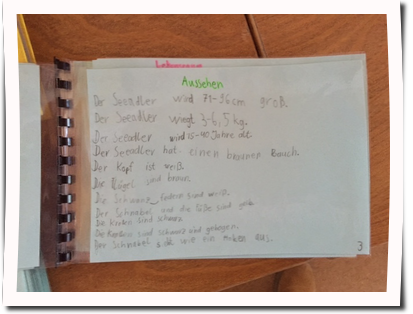 Aussehen
Der Seeadler wird 71-96 cm groß.
Der Seeadler wiegt 3-6,5 kg.
Der Seeadler wird 25-40 Jahre alt.
Der Seeadler hat einen braunen Bauch.
Der Kopf ist weiß.
Die Flügel sind braun.
Die Schwanz_federn sind weiß.
Der Schnabel und die Füße sind gelb
Die Krallen sind schwarz.
Die Krallen sind schwarz und gebogen.
Der Schnabel sieht wie ein Haken aus.
3